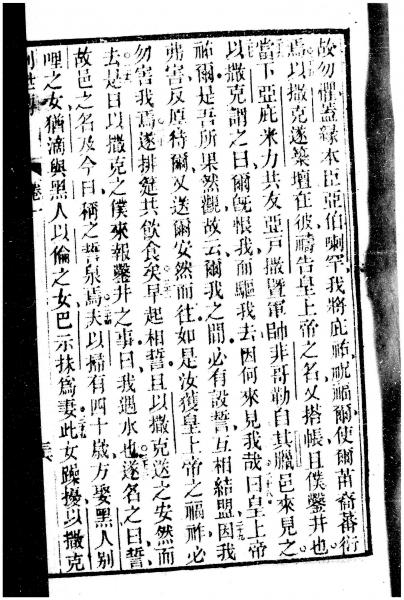 故勿憚蓋緣本臣亞伯喇罕我將庇祐祝福爾使爾苗裔蕃衍
焉以撒克遂築壇在彼禱告皇上帝之名又搭帳且僕鑿井也
當下亞庇米力共友亞戶撒暨軍帥非哥勒自其臘邑來見之
以撒克謂之曰爾旣恨我而驅我去因何來見我哉曰皇上帝
祐爾是吾所果然觀故云爾我之間必有設誓互相結盟因我
弗害反厚待爾又送爾安然而往如是汝獲皇上帝之福祚必
勿害我焉遂排筵共飲食矣早起相誓且以撒克送之安然而
去是日以撒克之僕來報鑿井之事曰我遇水也遂名之曰誓
故邑之名及今日稱之誓泉焉夫以掃有四十歲方娶黑人別
哩之女猶滴與黑人以倫之女巴示抹為妻此女躁擾以撒克
創世傳
卷一